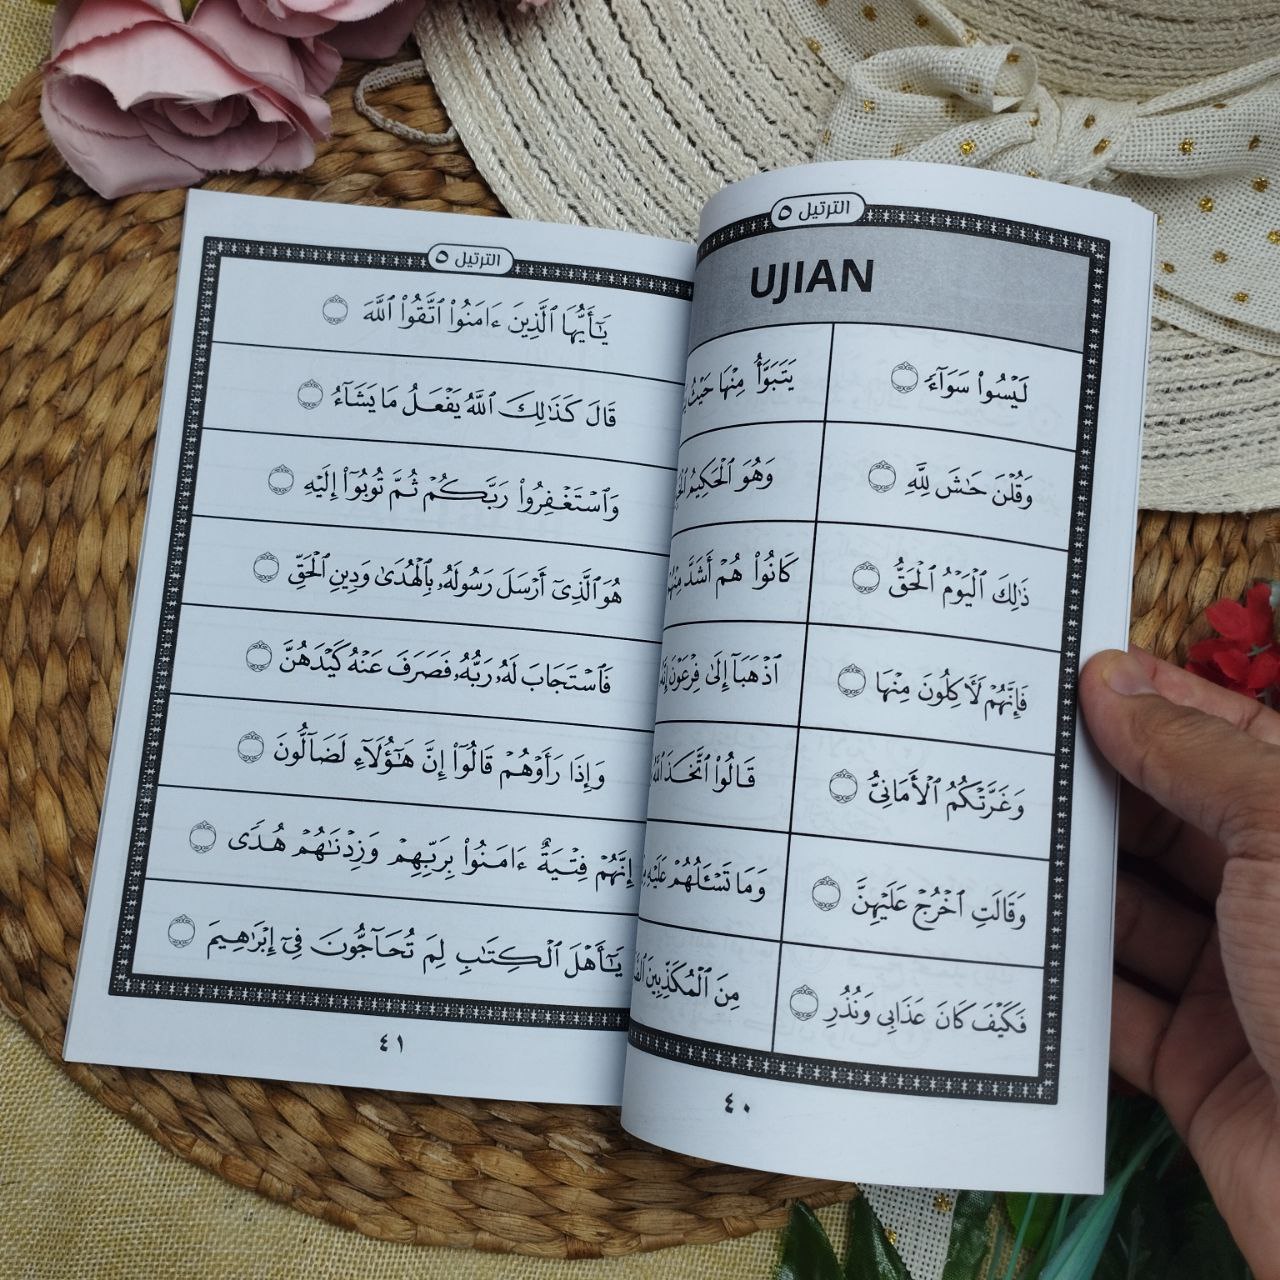 الترتيل ٥
UJIAN
لَيْسُوا۟ سَوَآءً
يَتَبَوَّأُ مِنْهَا حَيْثُ
وَقُلْنَ حَٰشَ لِلَّهِ
وَهُوَ ٱلْحَكِيمُ
ذَٰلِكَ ٱلْيَوْمُ ٱلْحَقُّ
كَانُوا۟ هُمْ أَشَدَّ
فَإِنَّهُمْ لَـَٔاكِلُونَ مِنْهَا
ٱذْهَبَآ إِلَىٰ فِرْعَوْنَ
وَغَرَّتْكُمُ ٱلْأَمَانِىُّ
قَالُوا۟ ٱتَّخَذَ
وَقَالَتِ ٱخْرُجْ عَلَيْهِنَّ
وَمَا تَسْـَٔلُهُمْ عَلَيْهِ
فَكَيْفَ كَانَ عَذَابِى وَنُذُرِ
مِنَ ٱلْمُكَذِّبِينَ
٤٠
الترتيل ٥
يَـٰٓأَيُّهَا ٱلَّذِينَ ءَامَنُوا۟ ٱتَّقُوا۟ ٱللَّهَ
قَالَ كَذَٰلِكَ ٱللَّهُ يَفْعَلُ مَا يَشَآءُ
وَٱسْتَغْفِرُوا۟ رَبَّكُمْ ثُمَّ تُوبُوٓا۟ إِلَيْهِ
هُوَ ٱلَّذِىٓ أَرْسَلَ رَسُولَهُۥ بِٱلْهُدَىٰ وَدِينِ ٱلْحَقِّ
فَٱسْتَجَابَ لَهُۥ رَبُّهُۥ فَصَرَفَ عَنْهُ كَيْدَهُنَّ
وَإِذَا رَأَوْهُمْ قَالُوٓا۟ إِنَّ هَـٰٓؤُلَآءِ لَضَآلُّونَ
إِنَّهُمْ فِتْيَةٌ ءَامَنُوا۟ بِرَبِّهِمْ وَزِدْنَـٰهُمْ هُدًى
يَـٰٓأَهْلَ ٱلْكِتَـٰبِ لِمَ تُحَآجُّونَ فِىٓ إِبْرَٰهِيمَ
٤١